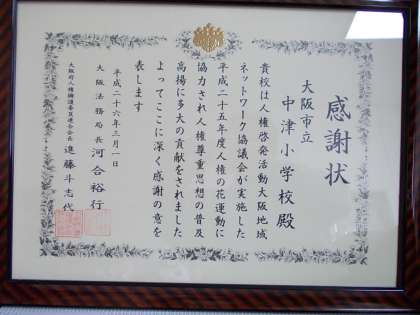 感謝状
大阪市立
中津小学校殿
貴校は人権啓発活動大阪地域
ネットワーク協議会が実施した
平成二十五年度人権の花運動に
協力され人権尊重思想の普及
高揚に多大の貢献をされました
よってここに深く感謝の意を
表します
平成二十六年三月一日
大阪法務局長 河合裕行
大阪府人権擁護委員連合会長 進藤斗志代